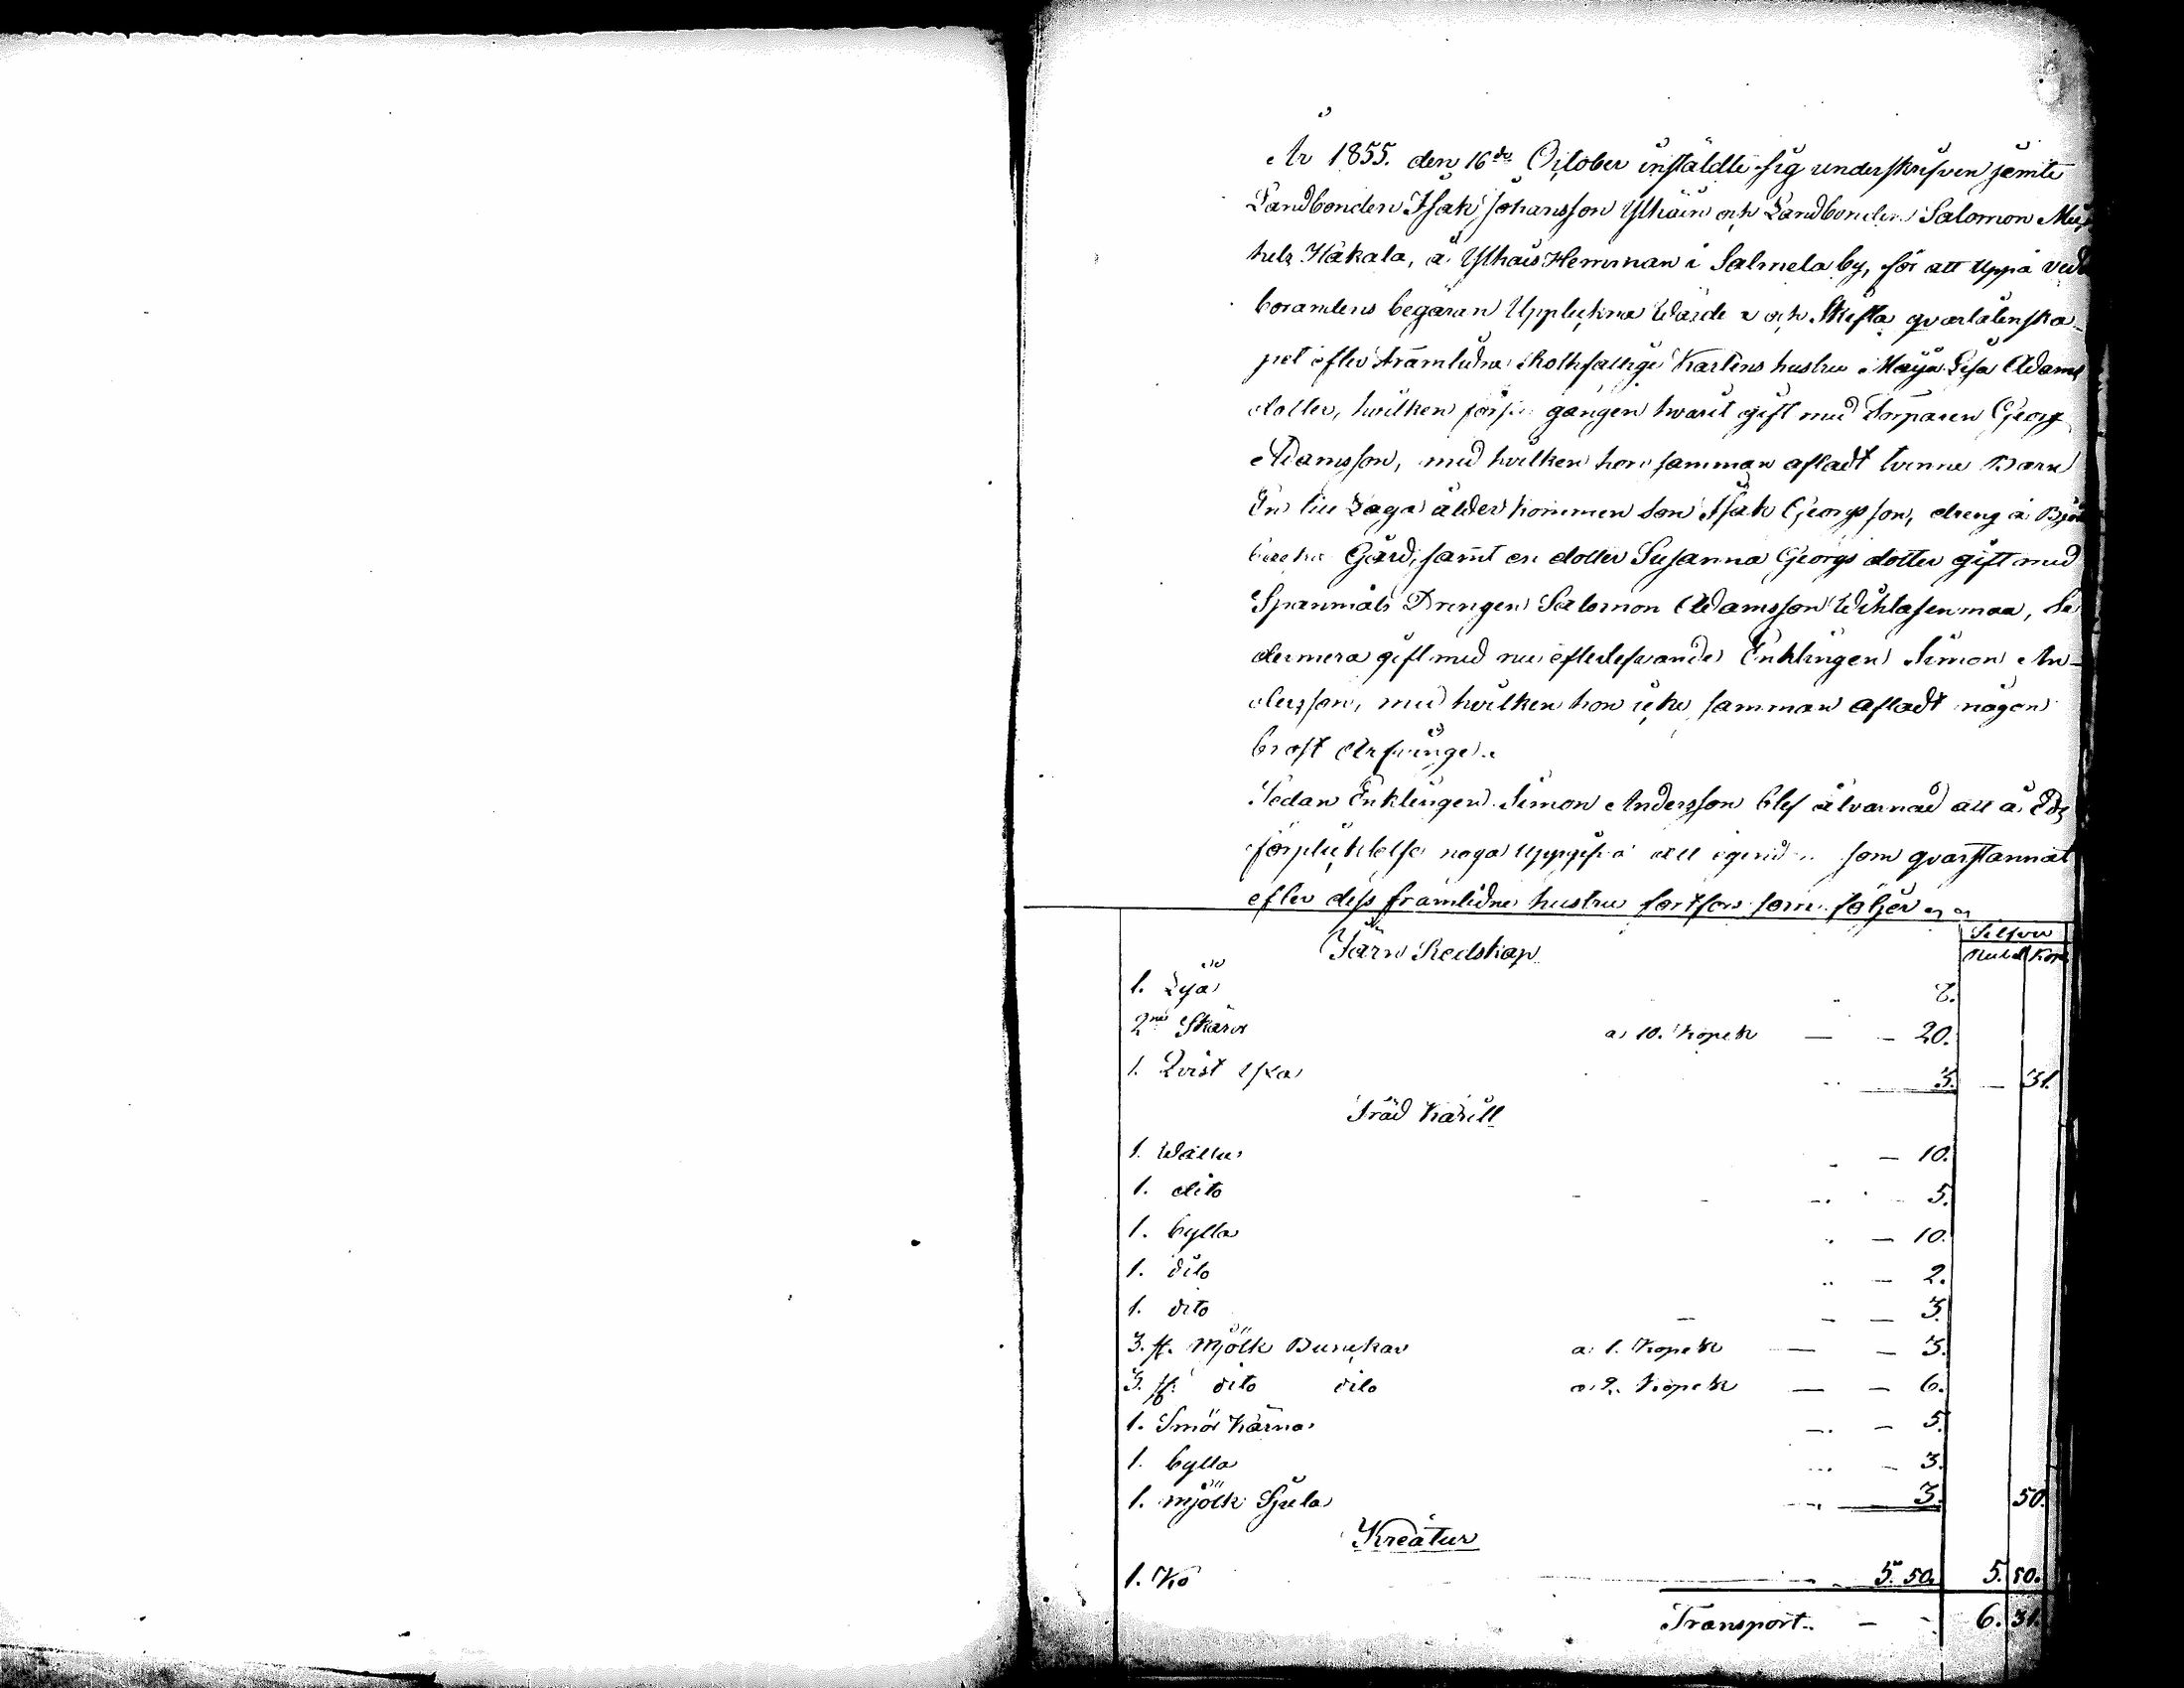 År 1855. den 16de October instäldte sig underskrifven jemte
Landbonden Isak Johansson Ylhäin och Landbonden Salomon
Håkala, å Ylhäis Hemman i Salmela by, för att uppå vedb
börandens begäran Upplyckna Wärdera och Skifta qvarlåtenska-
pet efter framlidne Rothfattige Karlens hustru Maija Lisa Adams
dotter, hvilken förra gången hwarit gift med Torparen Georg
Adamsson, med hvilken hon samman afladt tvenne Barn
En till Laga ålder kommen Son Isak Georgsson, dreng å
Gård, samt en dotter Susanna Georgsdotter gift med
Spanmåls Drengen Salomon Adamsson Wihtasenmaa, Se
dermera gift med nu efterlefvande Enklingen Simon An-
dersson, med hvilken hon icke samman afladt någon
bröst Arfvinge.
Sedan Enklingen Simon Andersson blef alvarnad att å Eds
förplicktelse noga uppgifva all egendom som qvarstannat
efter dess framlidne hustru fortfors som följer
Silfver
Järn Redskap Rubel Kop
1. Lya 8.
2ne Skäror a 10. Kopek — - 20.
1. Qvist yxa 3. — 31.
Träd Kärill
1. Wattu - — 10.
1. dito 5.
1. bytta — 10.
1. dito — 2.
1. dito — 3.
3. st. Mjölk Bunckar a 1. Kopek — — 3.
3. st. dito dito a 2. Kopek — — 6.
1. Smör Kärna — 5.
1. bytta — 3.
1. mjölk Sjula 3. 50.
Kreatur
1. Ko 5. 50. 5. 50.
Transport. — - 6. 31.